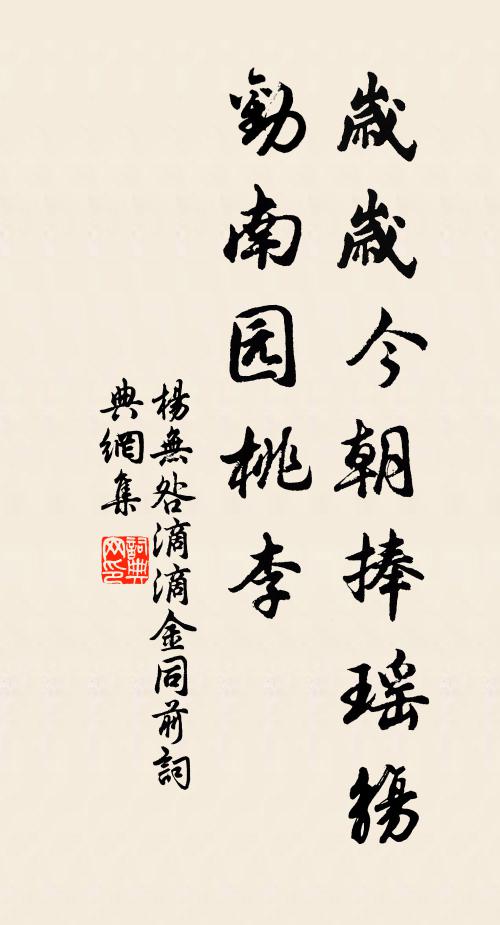 歲歲今朝捧瑶觴
勸南园桃李
楊無咎滴滴金同前詞
典網集
詞典网印